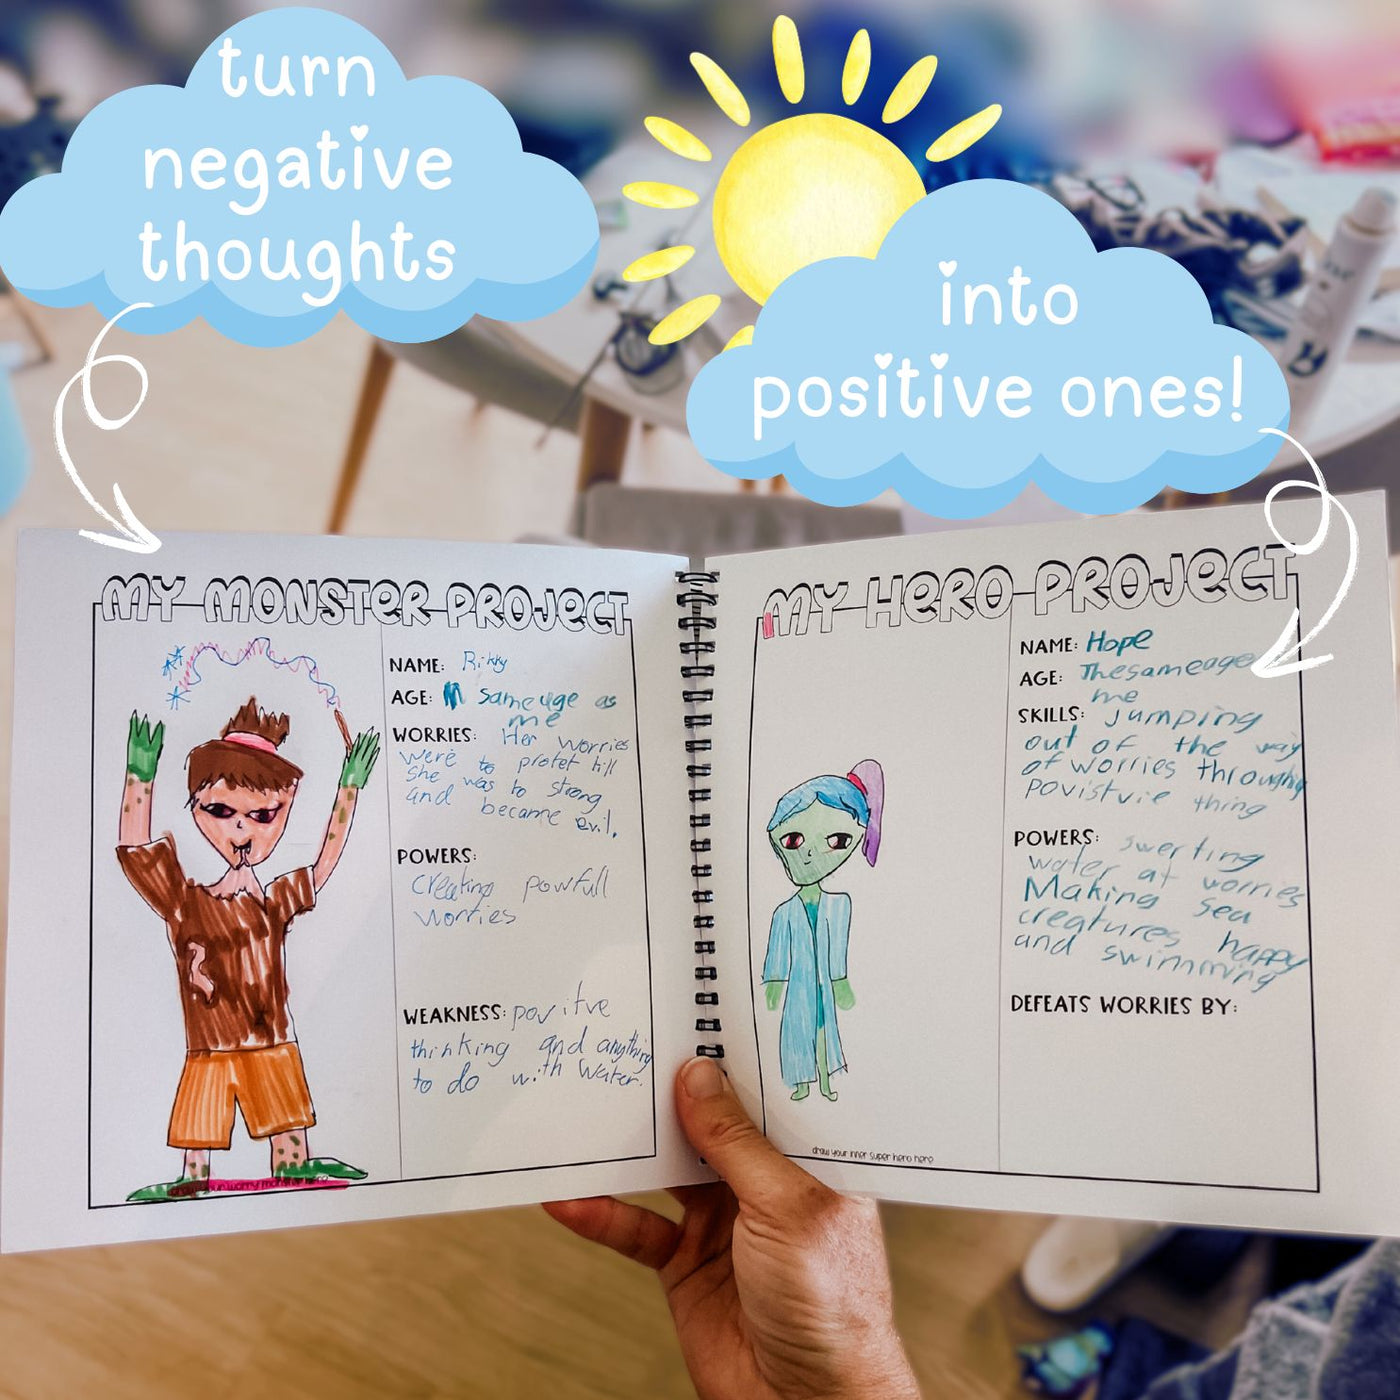 turn
negative
thoughts
into
positive ones!
MY MONSTER PROJECT
NAME: Rikky
AGE: same age as
me
WORRIES: Her worries
were to protet till
she was to strong
and became evil.
POWERS:
Creating powfull
worries
WEAKNESS: povitve
thinking and anything
to do with water.
draw your worry monster here
MY HERO PROJECT
NAME: Hope
AGE: Thesameage
me
SKILLS: jumping
out of the way
of worries throughy
povistvie thing
POWERS: swerting
water at worries
Making sea
creatures happy
and swimming
DEFEATS WORRIES BY:
draw your inner super hero here